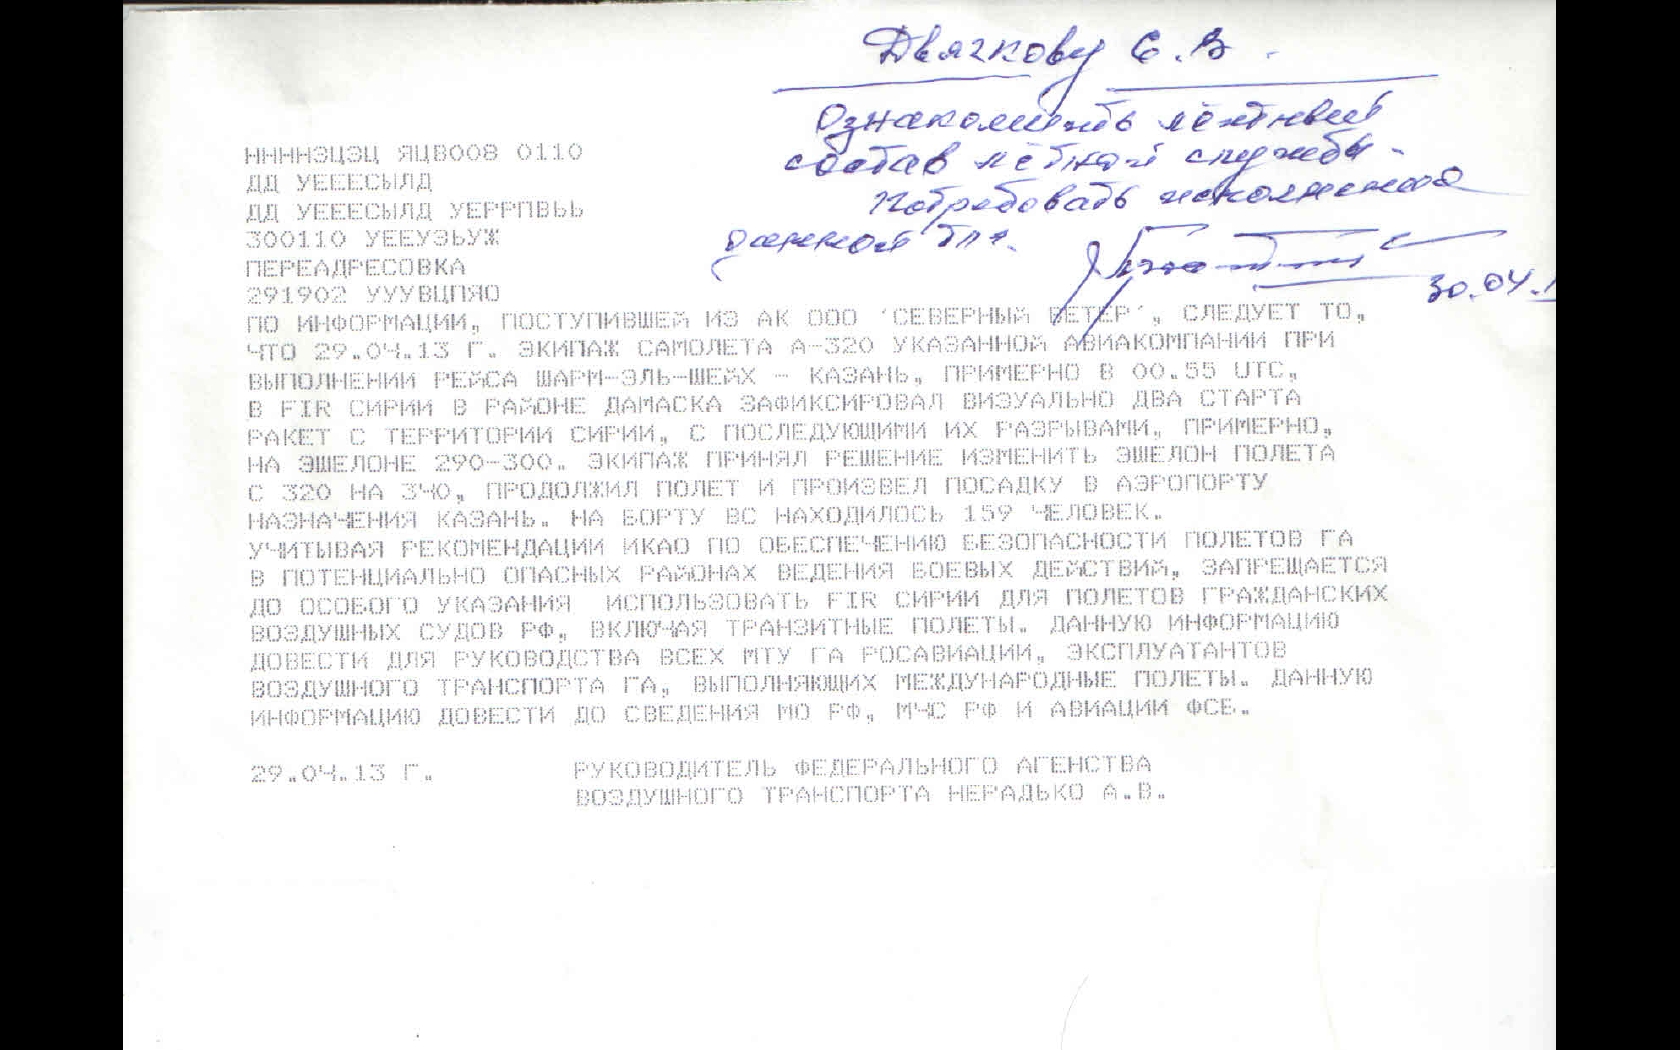 Двячкову С.В.
Ознакомить лётный
состав лётной службы.
Потребовать исполнения
данной тлг.
30.04.1
ННННЭЦЭЦ ЯЦВ008 0110
ДД УЕЕЕСЫЛД
ДД УЕЕЕСЫЛД УЕРРПВЬЬ
300110 УЕЕУЭЬУЖ
ПЕРЕАДРЕСОВКА
291902 УУУВЦПЯО
ПО ИНФОРМАЦИИ, ПОСТУПИВШЕЙ ИЗ АК ООО 'СЕВЕРНЫЙ ВЕТЕР', СЛЕДУЕТ ТО,
ЧТО 29.04.13 Г. ЭКИПАЖ САМОЛЕТА А-320 УКАЗАННОЙ АВИАКОМПАНИИ ПРИ
ВЫПОЛНЕНИИ РЕЙСА ШАРМ-ЭЛЬ-ШЕЙХ - КАЗАНЬ, ПРИМЕРНО В 00.55 UTC,
В FIR СИРИИ В РАЙОНЕ ДАМАСКА ЗАФИКСИРОВАЛ ВИЗУАЛЬНО ДВА СТАРТА
РАКЕТ С ТЕРРИТОРИИ СИРИИ, С ПОСЛЕДУЮЩИМИ ИХ РАЗРЫВАМИ, ПРИМЕРНО,
НА ЭШЕЛОНЕ 290-300. ЭКИПАЖ ПРИНЯЛ РЕШЕНИЕ ИЗМЕНИТЬ ЭШЕЛОН ПОЛЕТА
С 320 НА 340, ПРОДОЛЖИЛ ПОЛЕТ И ПРОИЗВЕЛ ПОСАДКУ В АЭРОПОРТУ
НАЗНАЧЕНИЯ КАЗАНЬ. НА БОРТУ ВС НАХОДИЛОСЬ 159 ЧЕЛОВЕК.
УЧИТЫВАЯ РЕКОМЕНДАЦИИ ИКАО ПО ОБЕСПЕЧЕНИЮ БЕЗОПАСНОСТИ ПОЛЕТОВ ГА
В ПОТЕНЦИАЛЬНО ОПАСНЫХ РАЙОНАХ ВЕДЕНИЯ БОЕВЫХ ДЕЙСТВИЙ, ЗАПРЕЩАЕТСЯ
ДО ОСОБОГО УКАЗАНИЯ ИСПОЛЬЗОВАТЬ FIR СИРИИ ДЛЯ ПОЛЕТОВ ГРАЖДАНСКИХ
ВОЗДУШНЫХ СУДОВ РФ, ВКЛЮЧАЯ ТРАНЗИТНЫЕ ПОЛЕТЫ. ДАННУЮ ИНФОРМАЦИЮ
ДОВЕСТИ ДЛЯ РУКОВОДСТВА ВСЕХ МТУ ГА РОСАВИАЦИИ, ЭКСПЛУАТАНТОВ
ВОЗДУШНОГО ТРАНСПОРТА ГА, ВЫПОЛНЯЮЩИХ МЕЖДУНАРОДНЫЕ ПОЛЕТЫ. ДАННУЮ
ИНФОРМАЦИЮ ДОВЕСТИ ДО СВЕДЕНИЯ МО РФ, МЧС РФ И АВИАЦИИ ФСБ.
29.04.13 Г. РУКОВОДИТЕЛЬ ФЕДЕРАЛЬНОГО АГЕНСТВА
ВОЗДУШНОГО ТРАНСПОРТА НЕРАДЬКО А.В.